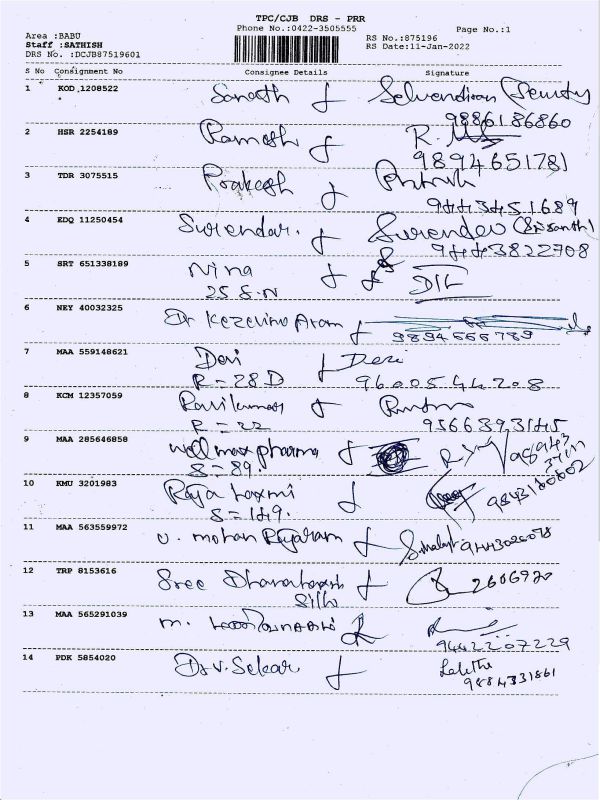 TPC/CJB DRS - PRR
Phone No.:0422-3505555
Page No.:1
Area :BABU
Staff :SATHISH
DRS No. :DCJB87519601
RS No.:875196
RS Date:11-Jan-2022
S No Consignment No Consignee Details Signature
1 KOD 1208522
9886186860
2 HSR 2254189 Ramesh
9894651781
3 TDR 3075515 Prakash
9443451689
4 EDQ 11250454 Surendar.
9443822708
5 SRT 651338189 Nina
25 S.N
6 NEY 40032325 Dr Kezevino Aram
9894666789
7 MAA 559148621 Devi Devi
R = 28 D 9600544208
8 KCM 12357059 Ravikumar
R = 22 9566393145
9 MAA 285646858 Wellmax pharma
S = 89.
10 KMU 3201983 Raja Laxmi
S = 149. 9843160602
11 MAA 563559972 V. mohan Rajaram
12 TRP 8153616 Sree
Silk 2606920
13 MAA 565291039 m.
9442207229
14 PDK 5854020 Dr V. Sekar Lalitha
9884331861